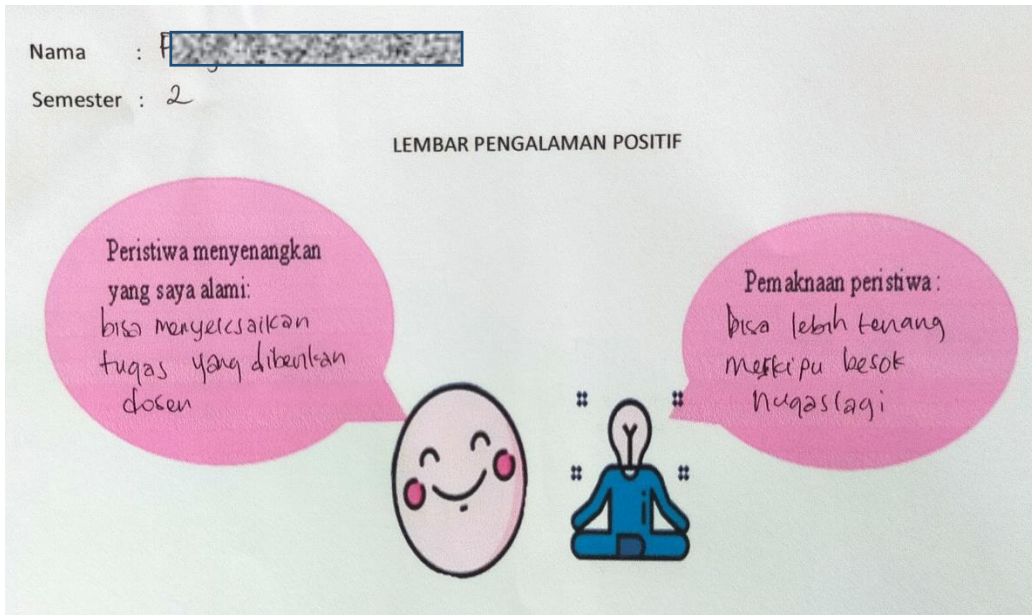 Nama :
Semester : 2
LEMBAR PENGALAMAN POSITIF
Peristiwa menyenangkan
yang saya alami:
bisa menyelesaikan
tugas yang diberikan
dosen
Pemaknaan peristiwa :
bisa lebih tenang
meskipu besok
nugas lagi